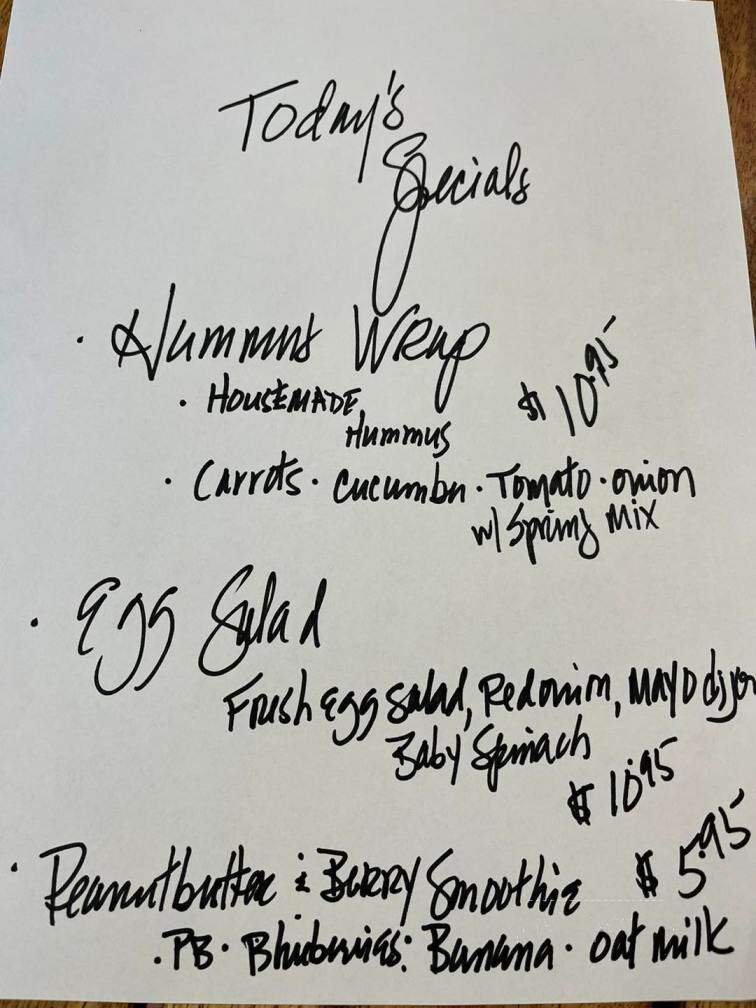 Today's
Specials
· Hummus Wrap
· HOUSEMADE $10.95
Hummus
· Carrots · Cucumber · Tomato · onion
w/ Spring Mix
· Egg Salad
Fresh egg salad, Red onion, Mayo dijon
Baby Spinach
$10.95
· Peanutbutter & Berry Smoothie $5.95
· PB · Blueberries · Banana · oat milk